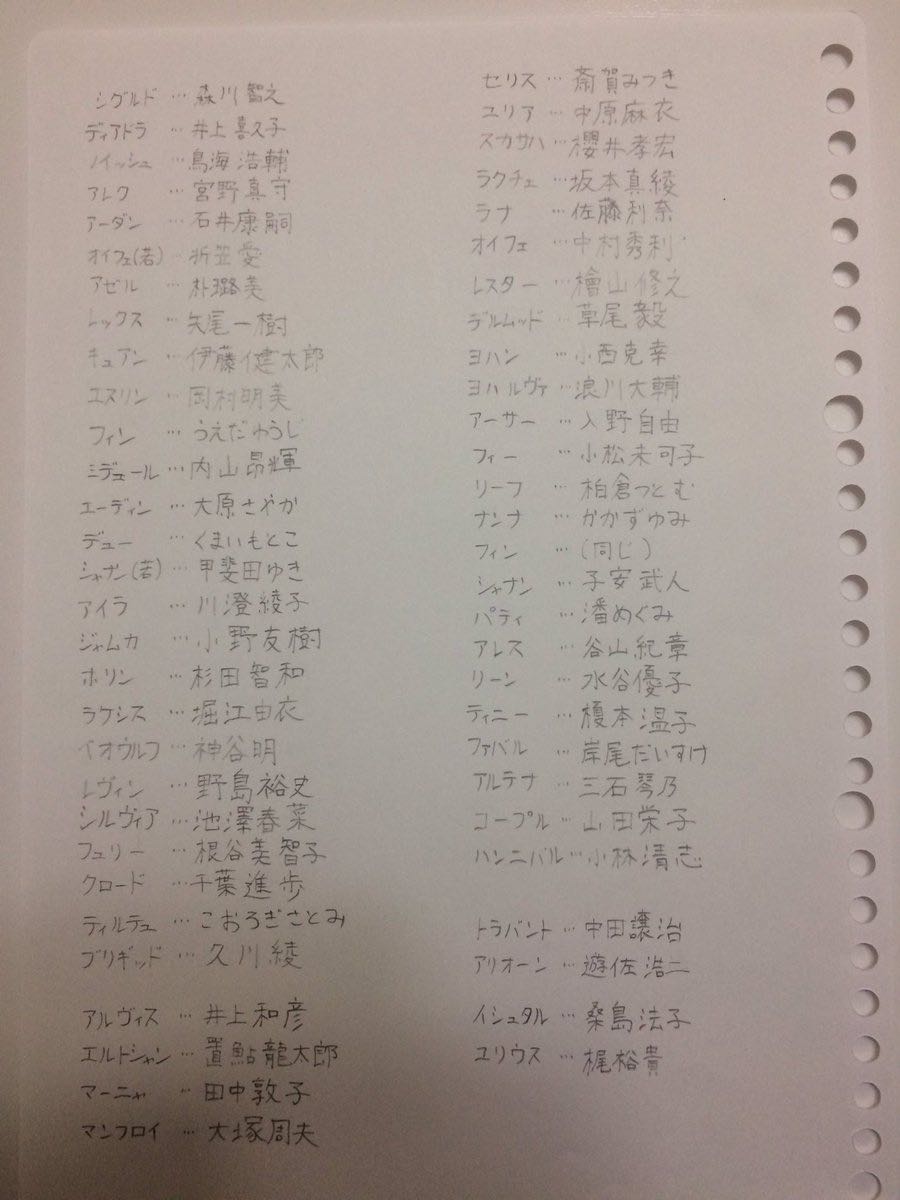 シグルド …森川智之
ディアドラ …井上喜久子
ノイッシュ …鳥海浩輔
アレク …宮野真守
アーダン …石井康嗣
オイフェ(若) …折笠愛
アゼル …朴璐美
レックス …矢尾一樹
キュアン …伊藤健太郎
エスリン …岡村明美
フィン …うえだゆうじ
ミデェール …内山昂輝
エーディン …大原さやか
デュー …くまいもとこ
シャナン(若) …甲斐田ゆき
アイラ …川澄綾子
ジャムカ …小野友樹
ホリン …杉田智和
ラケシス …堀江由衣
ベオウルフ …神谷明
レヴィン …野島裕史
シルヴィア …池澤春菜
フュリー …根谷美智子
クロード …千葉進歩
ティルテュ …こおろぎさとみ
ブリギッド …久川綾
アルヴィス …井上和彦
エルトシャン …置鮎龍太郎
マーニャ …田中敦子
マンフロイ …大塚周夫
セリス …斎賀みつき
ユリア …中原麻衣
スカサハ …櫻井孝宏
ラクチェ …坂本真綾
ラナ …佐藤利奈
オイフェ …中村秀利
レスター …檜山修之
デルムッド …草尾毅
ヨハン …小西克幸
ヨハルヴァ …浪川大輔
アーサー …入野自由
フィー …小松未可子
リーフ …柏倉つとむ
ナンナ …かかずゆみ
フィン …(同じ)
シャナン …子安武人
パティ …潘めぐみ
アレス …谷山紀章
リーン …水谷優子
ティニー …榎本温子
ファバル …岸尾だいすけ
アルテナ …三石琴乃
コープル …山田栄子
ハンニバル …小林清志
トラバント …中田譲治
アリオーン …遊佐浩二
イシュタル …桑島法子
ユリウス …梶裕貴